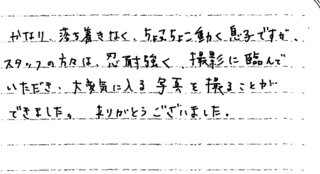 かなり、落ち着きなく、ちょこちょこ動く息子ですが、
スタッフの方々は、忍耐強く、撮影に臨んで
いただき、大変気に入る写真を撮ることが
できました。ありがとうございました。